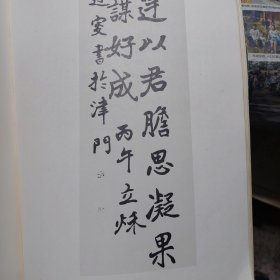 以君膽思凝果
謀好成 丙午立秋
書於津門